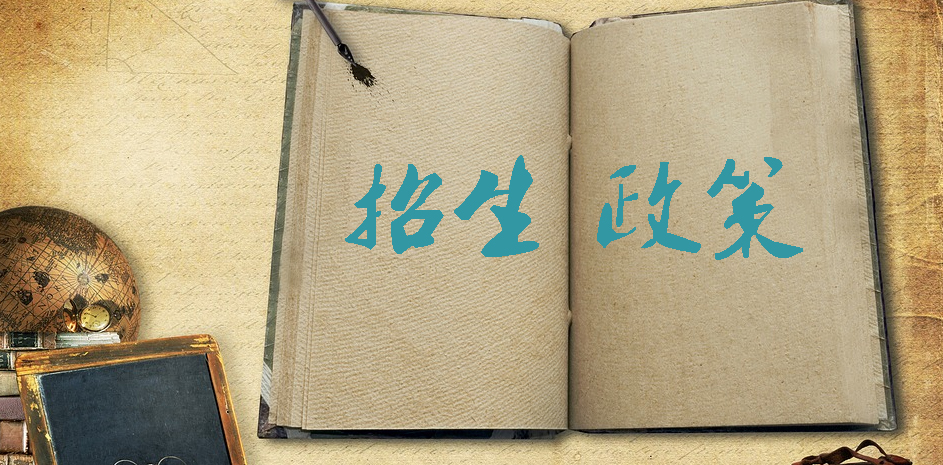 招生 政策